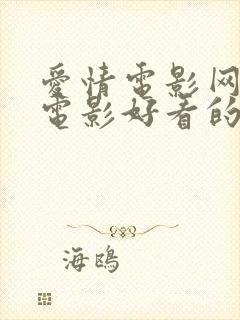 愛情電影网
電影好看的
海鴎